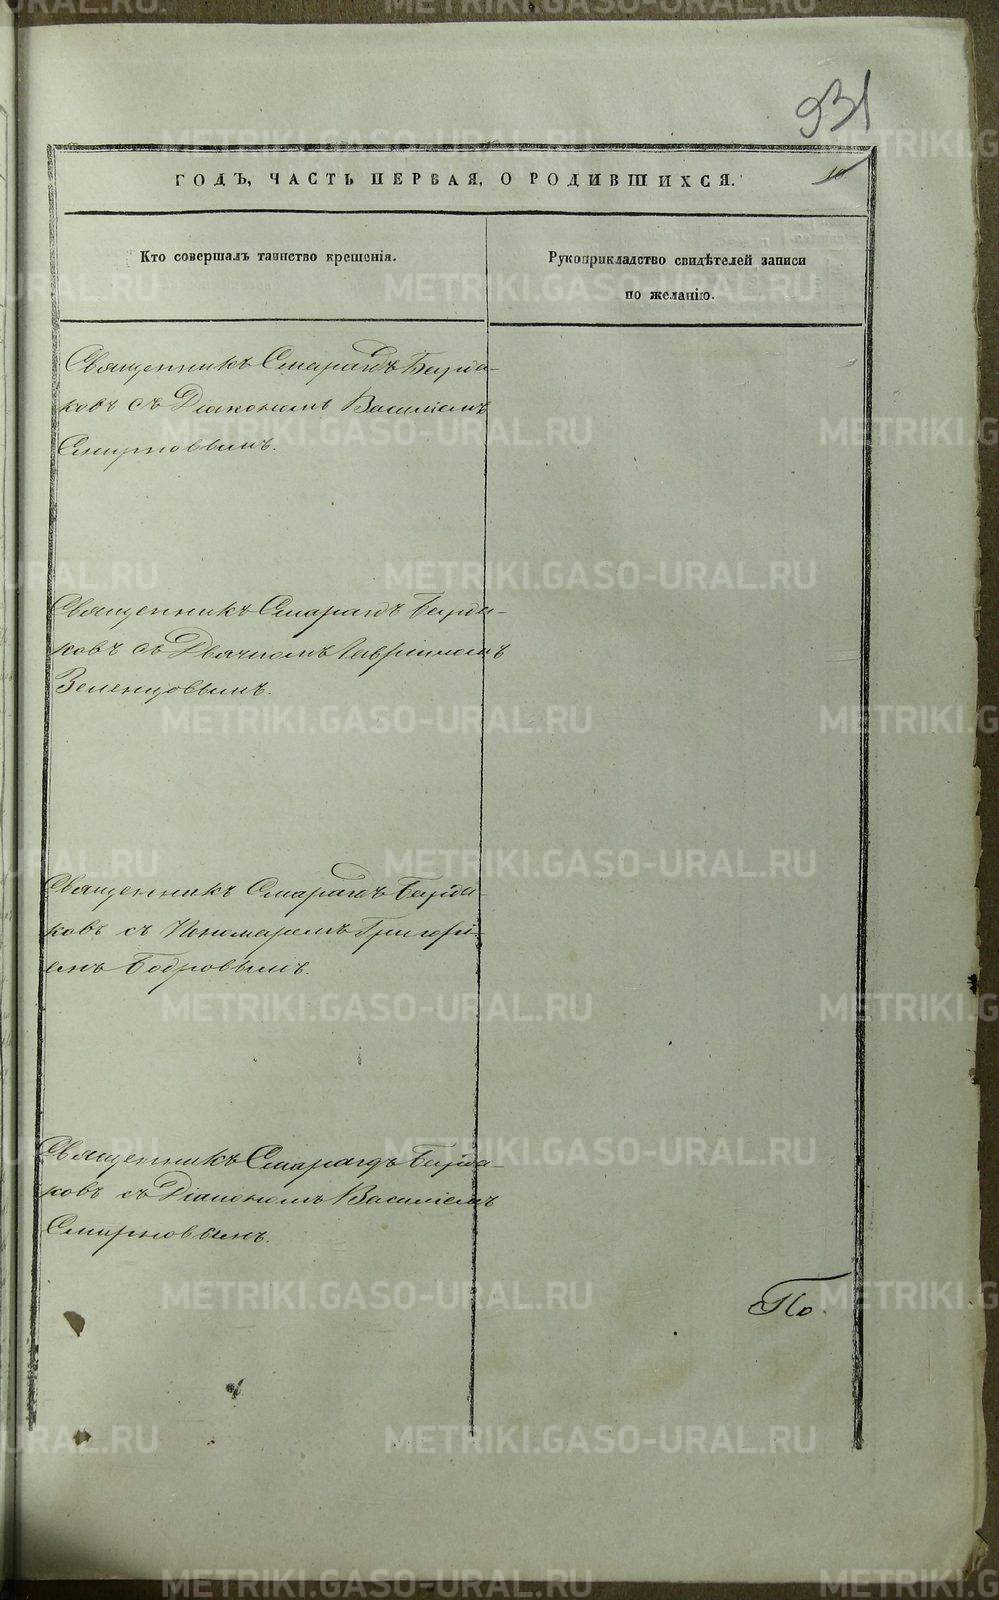 931
ГОДЪ, ЧАСТЬ ПЕРВАЯ, О РОДИВШИХСЯ.
Кто совершалъ таинство крещенія.
Рукоприкладство свидѣтелей записи
по желанію.
Священникъ Смарагдъ Бурда-
ковъ съ Діакономъ Василіемъ
Смирновымъ.
Священникъ Смарагдъ Бурда-
ковъ съ Дьячкомъ
Зеленцовымъ.
Священникъ Смарагдъ Бурда-
ковъ съ Пономаремъ Григорі-
емъ Бобровымъ.
Священникъ Смарагдъ Бурда-
ковъ съ Діакономъ Василіемъ
Смирновымъ.
По
METRIKI.GASO-URAL.RU